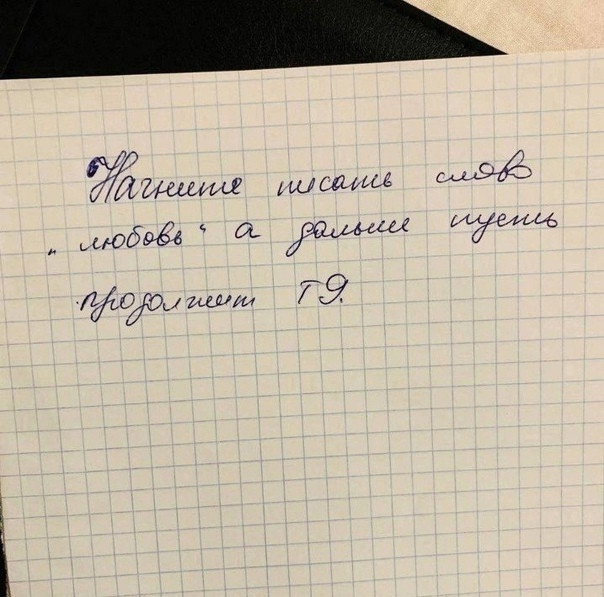 Начните писать слово
„любовь“ а дальше пусть
продолжит Т9.